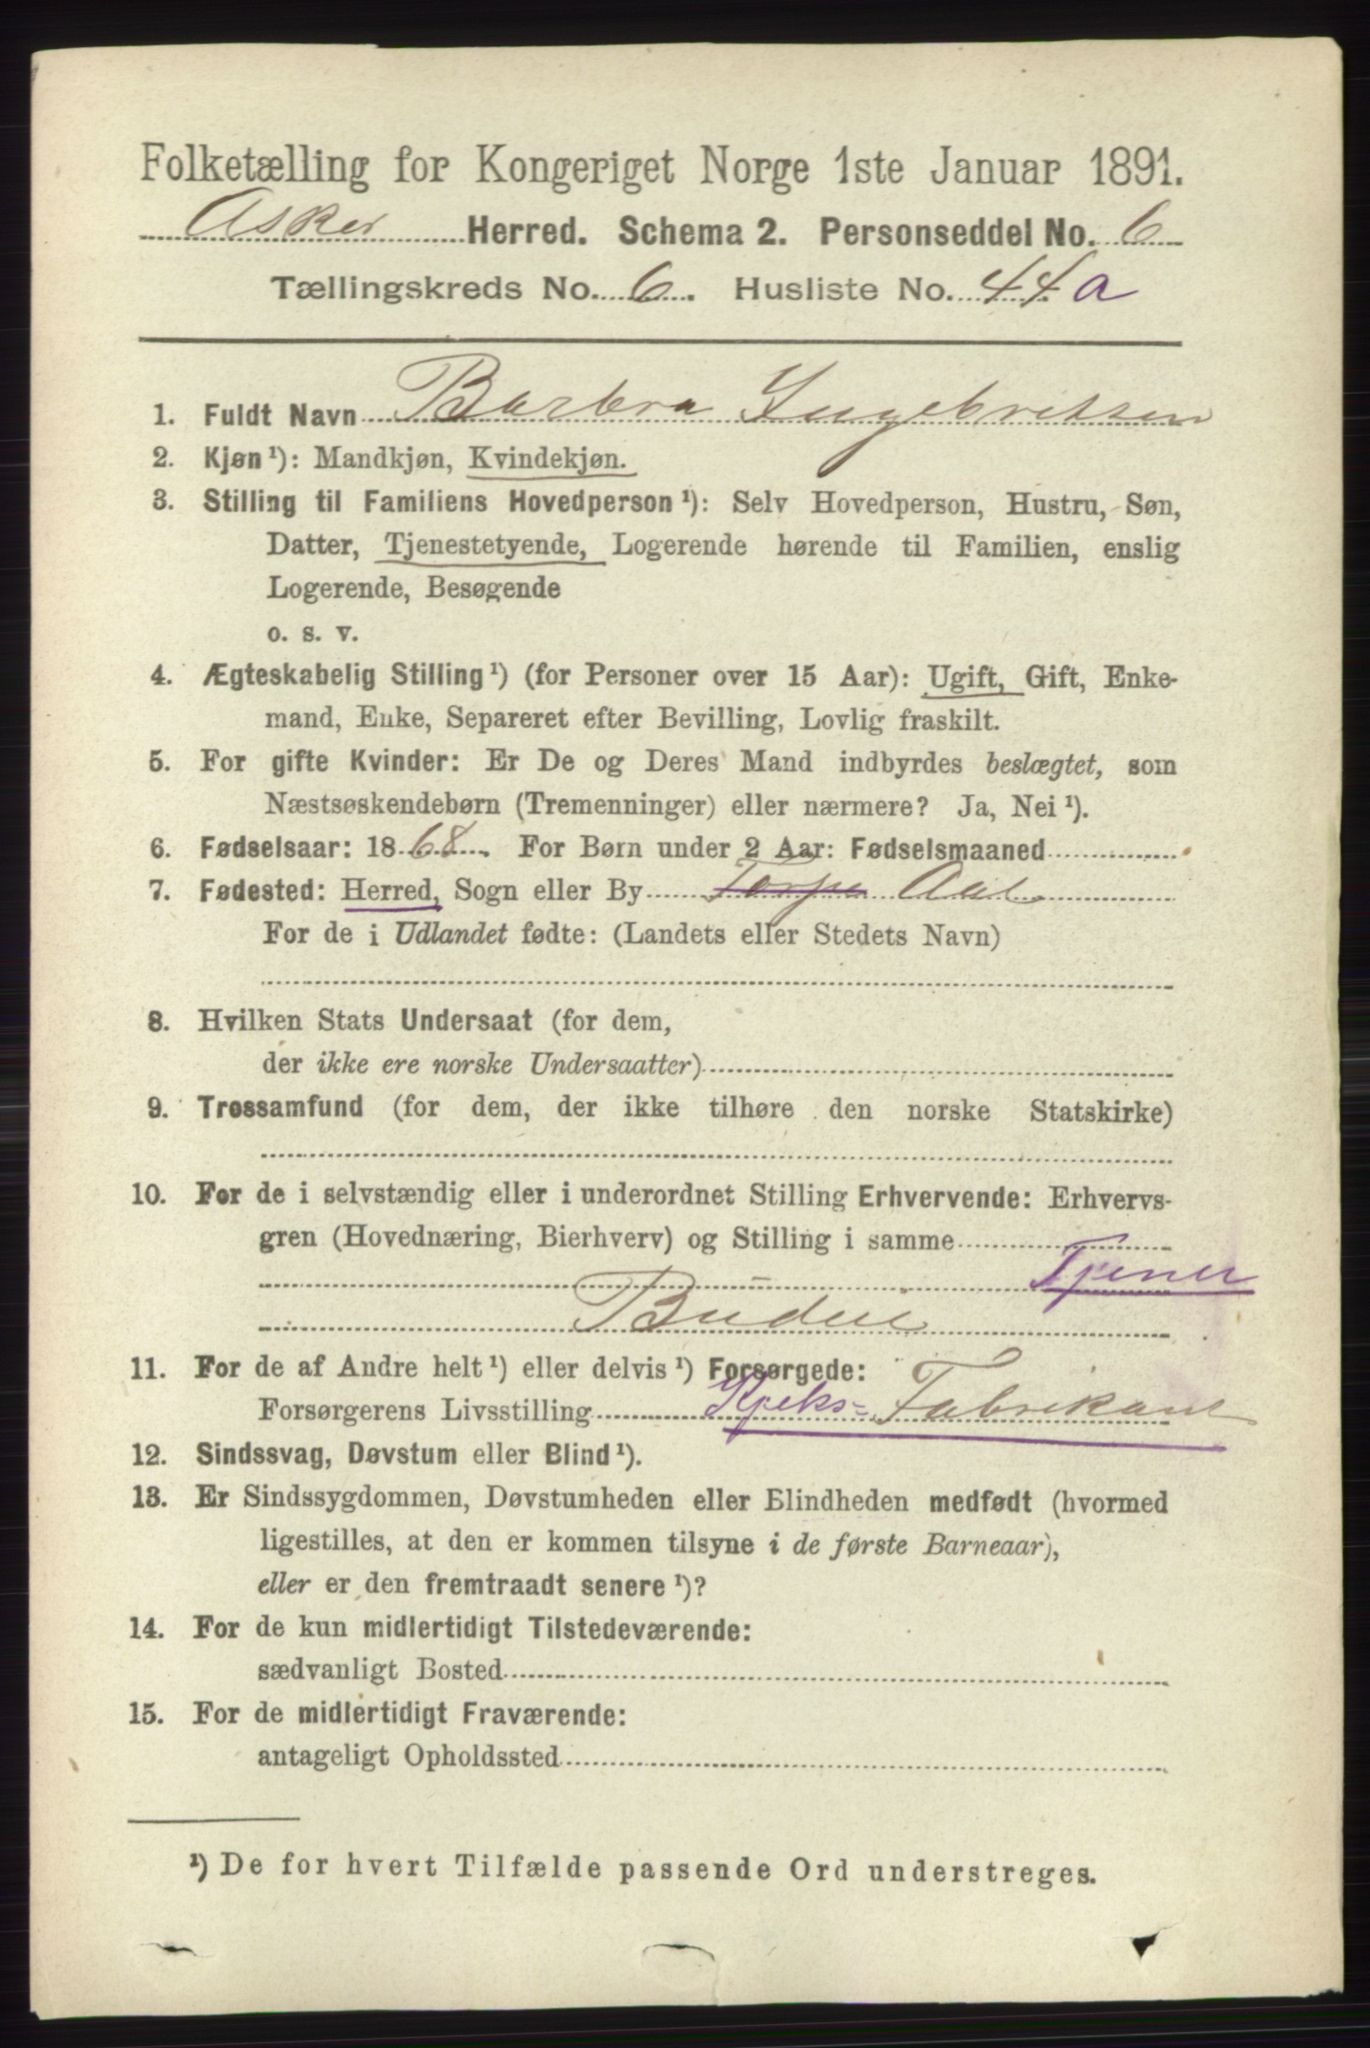 Folketælling for Kongeriget Norge 1ste Januar 1891.
Asker Herred. Schema 2. Personseddel No. 6
Tællingskreds No. 6. Husliste No. 44 a
1. Fuldt Navn Barbra Ingebritsen
2. Kjøn ¹): Mandkjøn, Kvindekjøn.
3. Stilling til Familiens Hovedperson ¹): Selv Hovedperson, Hustru, Søn,
Datter, Tjenestetyende, Logerende hørende til Familien, enslig
Logerende, Besøgende
o. s. v.
4. Ægteskabelig Stilling ¹) (for Personer over 15 Aar): Ugift, Gift, Enke-
mand, Enke, Separeret efter Bevilling, Lovlig fraskilt.
5. For gifte Kvinder: Er De og Deres Mand indbyrdes beslægtet, som
Næstsøskendebørn (Tremenninger) eller nærmere? Ja, Nei ¹).
6. Fødselsaar: 1868. For Børn under 2 Aar: Fødselsmaaned
7. Fødested: Herred, Sogn eller By Torpe Aal
For de i Udlandet fødte: (Landets eller Stedets Navn)
8. Hvilken Stats Undersaat (for dem,
der ikke ere norske Undersaatter)
9. Trossamfund (for dem, der ikke tilhøre den norske Statskirke)
10. For de i selvstændig eller i underordnet Stilling Erhvervende: Erhvervs-
gren (Hovednæring, Bierhverv) og Stilling i samme
Tjener
Budeie
11. For de af Andre helt ¹) eller delvis ¹) Forsørgede:
Forsørgerens Livsstilling Kjeks= Fabrikant
12. Sindssvag, Døvstum eller Blind ¹).
13. Er Sindssygdommen, Døvstumheden eller Blindheden medfødt (hvormed
ligestilles, at den er kommen tilsyne i de første Barneaar),
eller er den fremtraadt senere ¹)?
14. For de kun midlertidigt Tilstedeværende:
sædvanligt Bosted
15. For de midlertidigt Fraværende:
antageligt Opholdssted
¹) De for hvert Tilfælde passende Ord understreges.